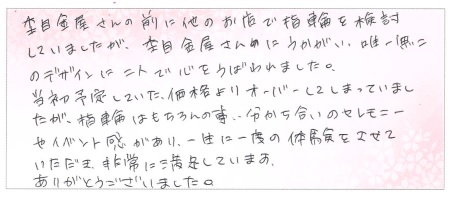 杢目金屋さんの前に他のお店で指輪を検討
していましたが、杢目金屋さんにうかがい、唯一無二
のデザインに二人で心をうばわれました。
当初予定していた価格よりオーバーしてしまっていまし
たが、指輪はもちろんの事、分かち合いのセレモニー
やイベント感があり、一生に一度の体験をさせて
いただき非常に満足しています。
ありがとうございました。